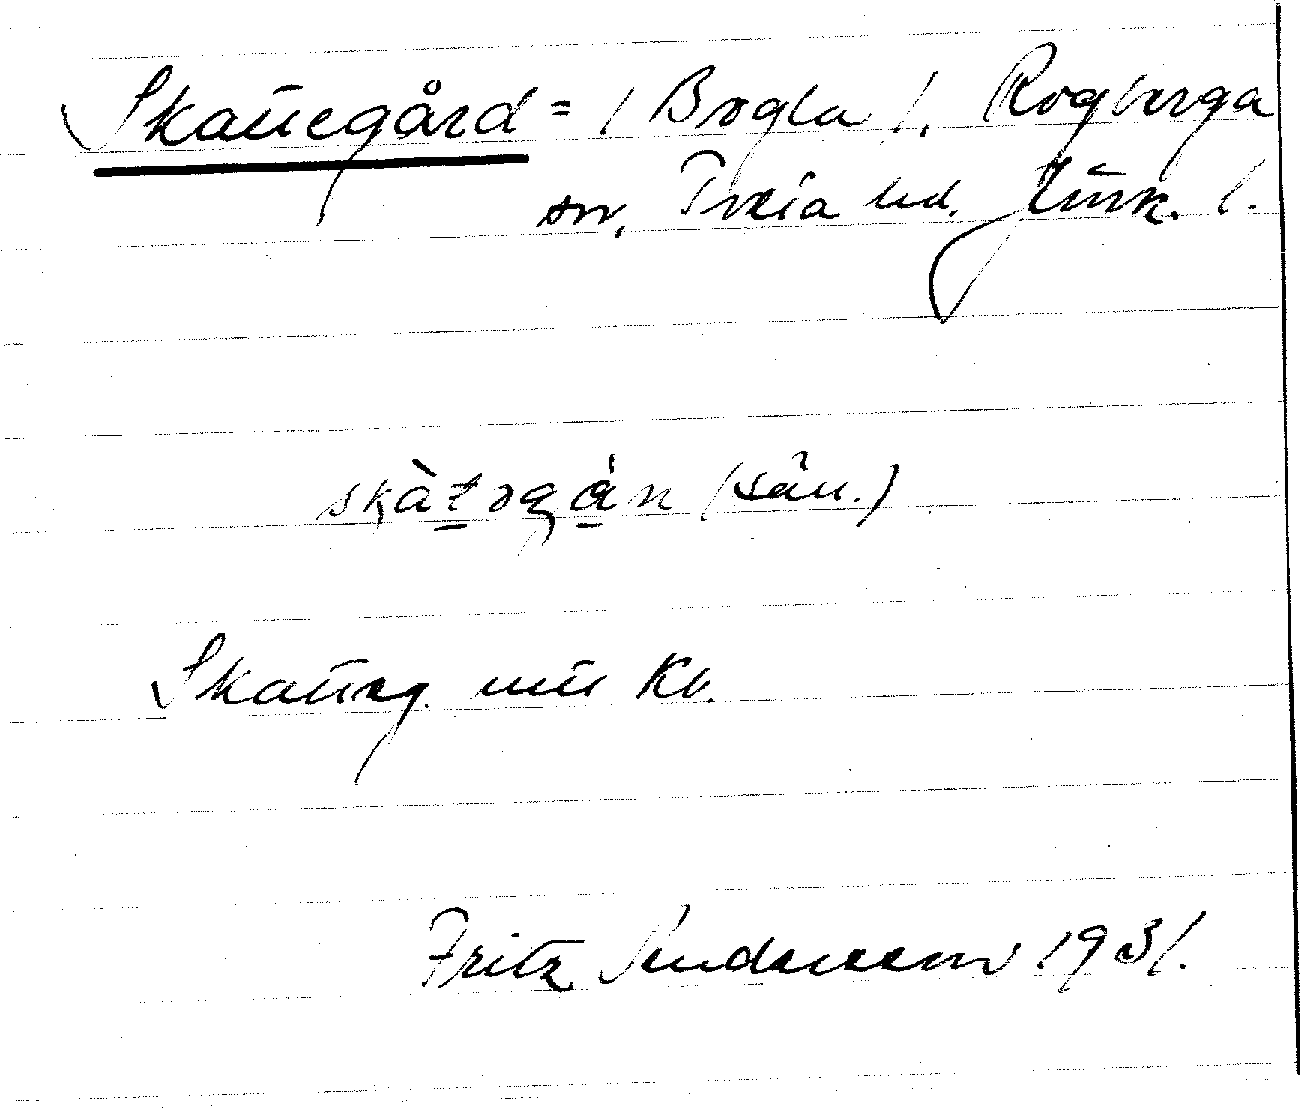 Skattegård = 1 Bogla 1, Rogberga
sn, Tveta hd. Jönk. l.
skàtəgá̱n (sån.)
Skatteg. mtl Kb.
Fritz Andersson 1931.